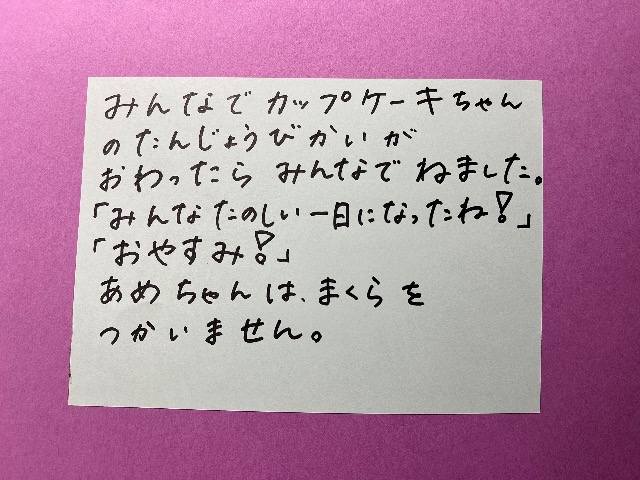 みんなで カップケーキちゃん
のたんじょうびかいが
おわったら みんなで ねました。
「みんなたのしい一日になったね!」
「おやすみ!」
あめちゃんは、まくらを
つかいません。